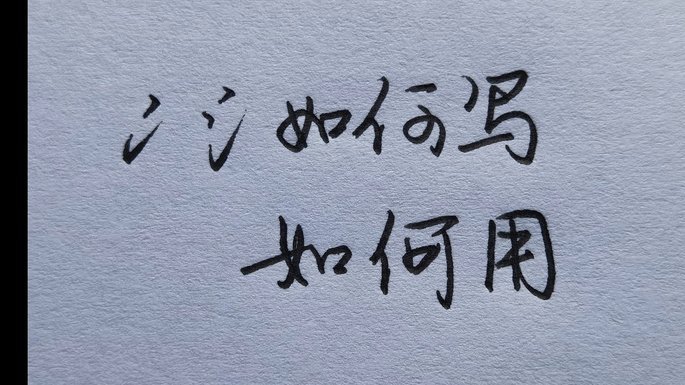 冫氵如何写
如何用